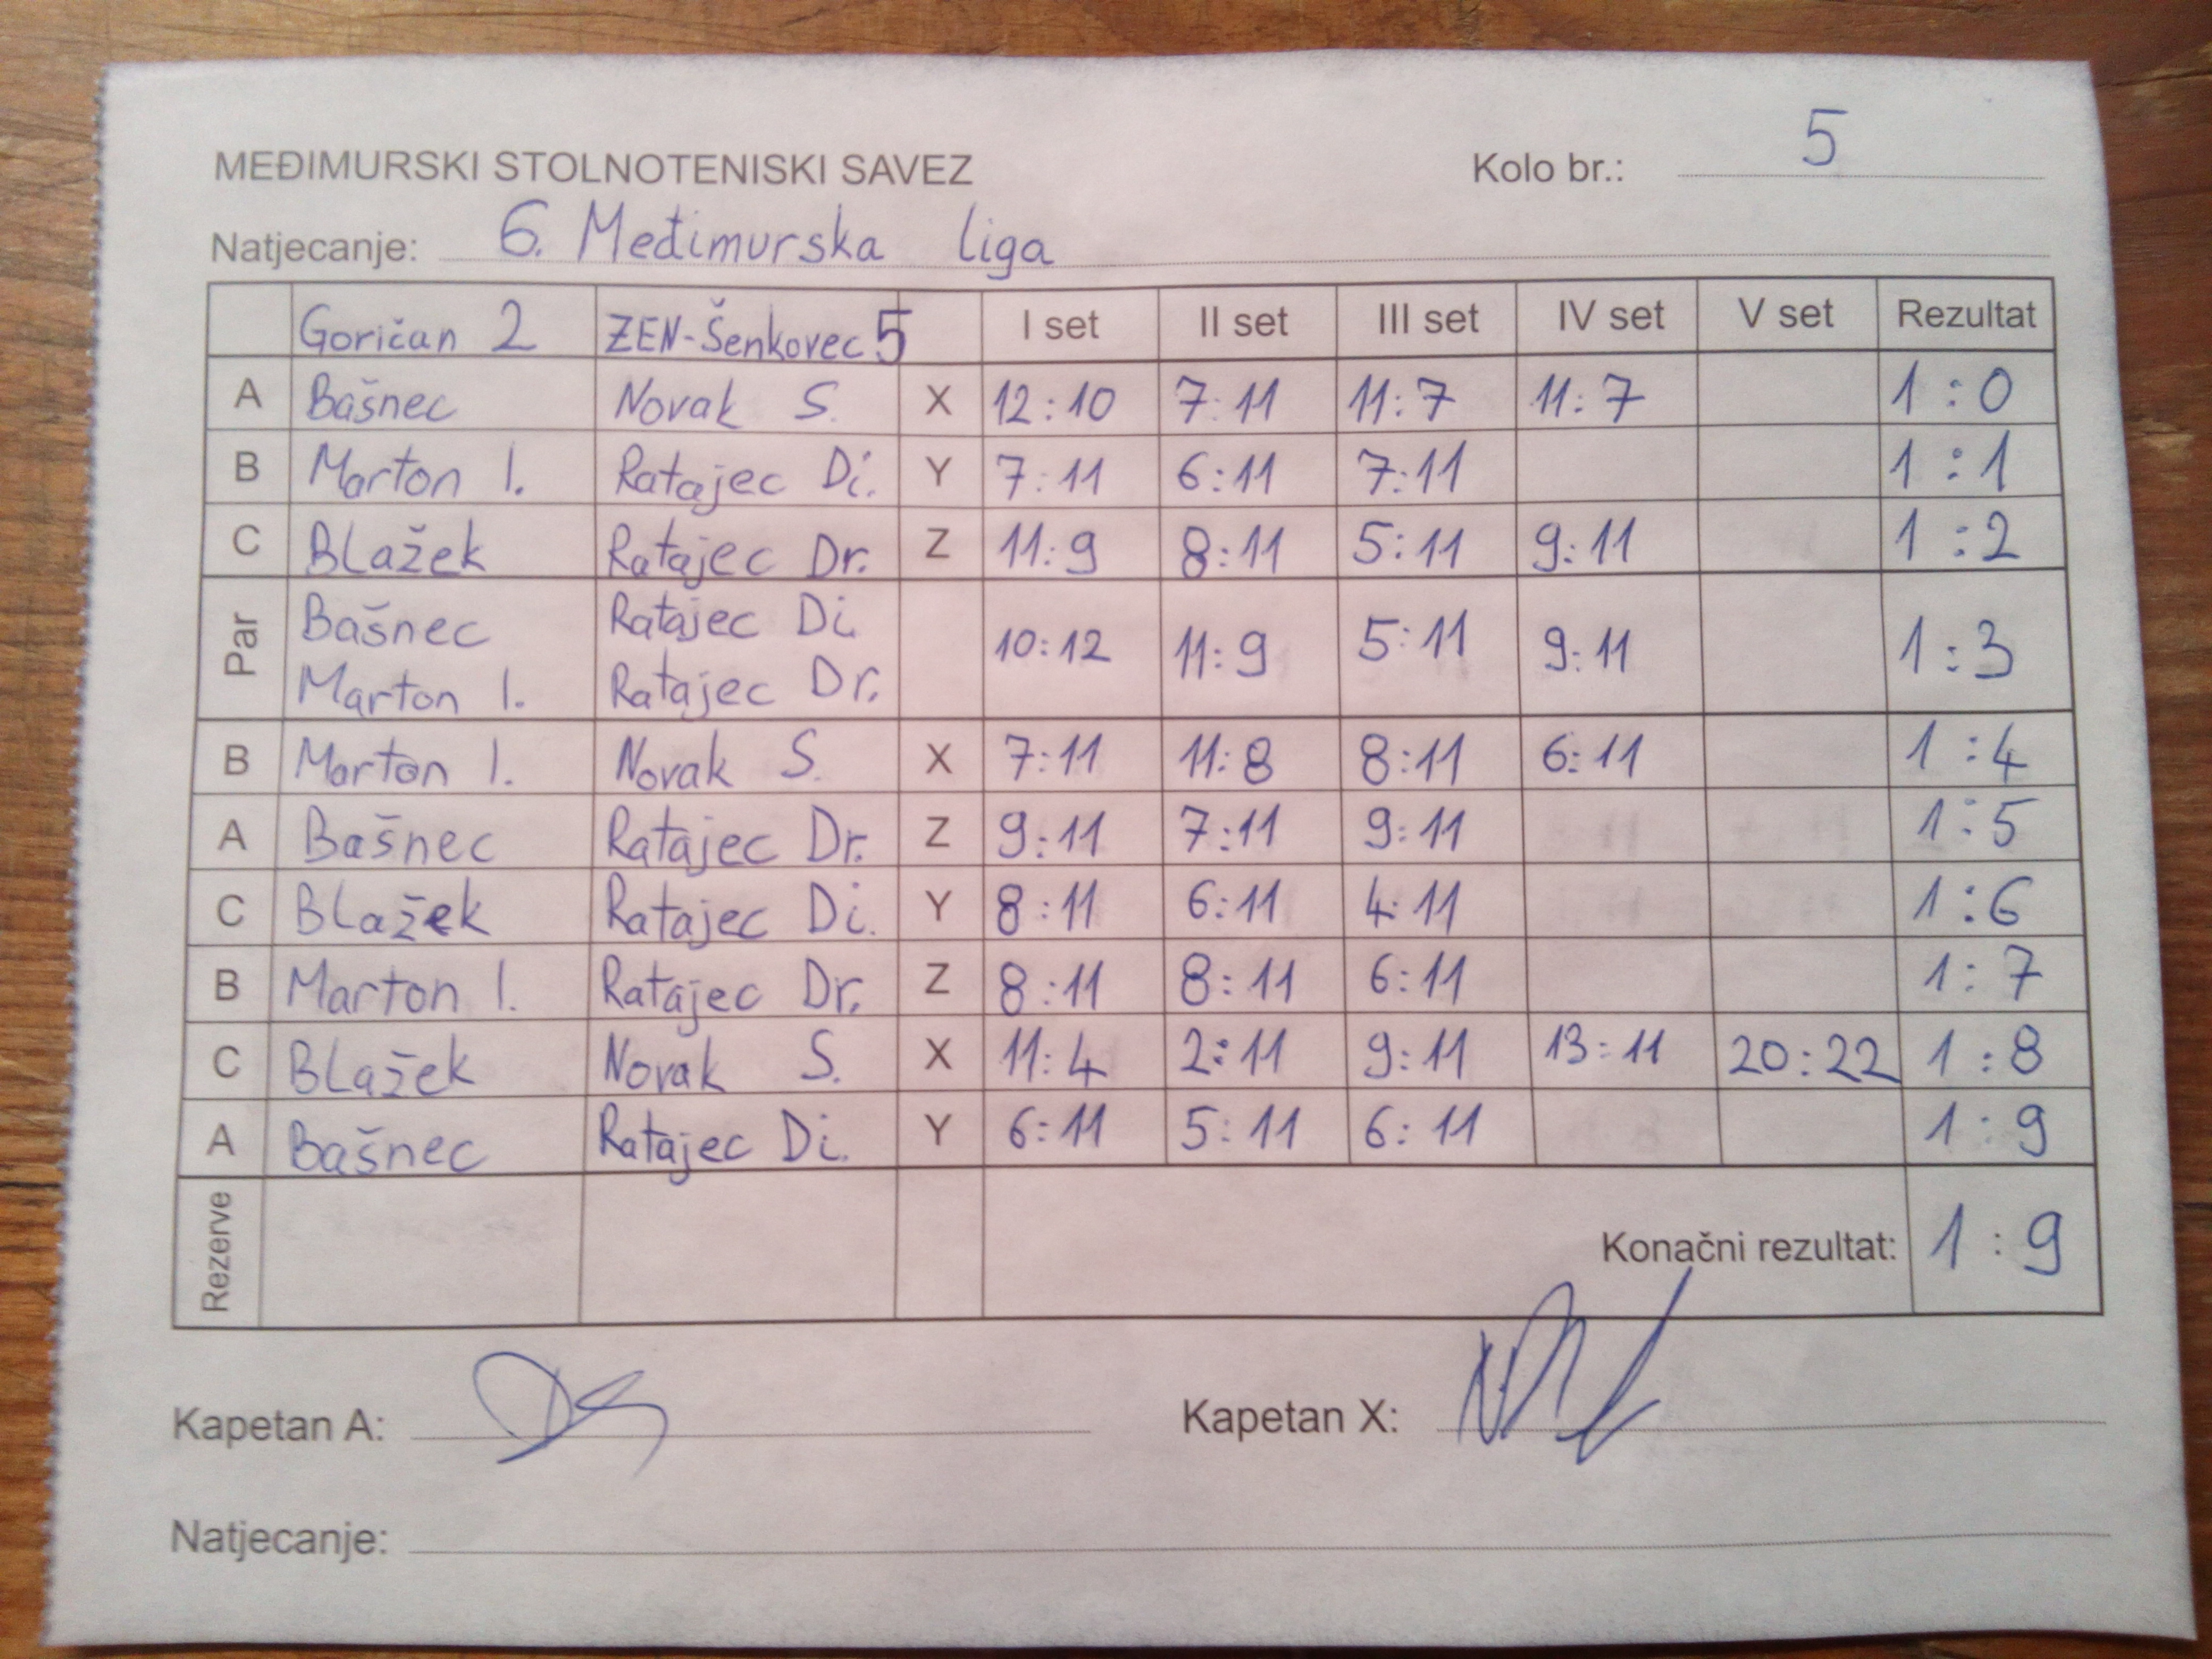 MEĐIMURSKI STOLNOTENISKI SAVEZ Kolo br.: 5
Natjecanje: 6. Međimurska liga
Goričan 2 ZEN-Šenkovec 5 I set II set III set IV set V set Rezultat
A Bašnec Novak S. X 12:10 7:11 11:7 11:7 1:0
B Marton I. Ratajec Di. Y 7:11 6:11 7:11 1:1
C Blažek Ratajec Dr. Z 11:9 8:11 5:11 9:11 1:2
Par Bašnec Ratajec Di. 10:12 11:9 5:11 9:11 1:3
Marton I. Ratajec Dr.
B Marton I. Novak S. X 7:11 11:8 8:11 6:11 1:4
A Bašnec Ratajec Dr. Z 9:11 7:11 9:11 1:5
C Blažek Ratajec Di. Y 8:11 6:11 4:11 1:6
B Marton I. Ratajec Dr. Z 8:11 8:11 6:11 1:7
C Blažek Novak S. X 11:4 2:11 9:11 13:11 20:22 1:8
A Bašnec Ratajec Di. Y 6:11 5:11 6:11 1:9
Rezerve Konačni rezultat: 1:9
Kapetan A: Kapetan X:
Natjecanje: